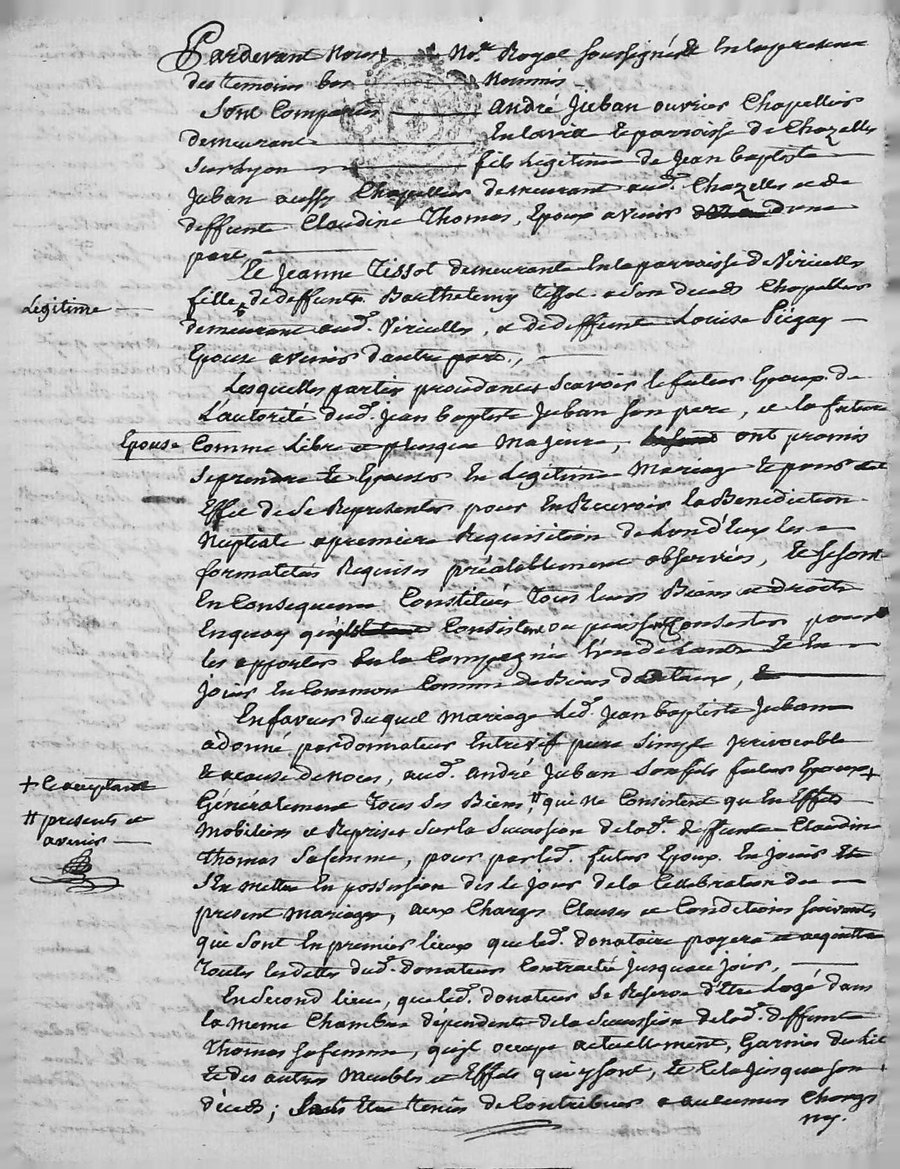 Pardevant Nous No.re Royal soussigné Et En la presence
des temoins bas Nommés
Sont Comparus andré Juban ouvrier Chapellier
demeurant En la paroisse de Chazelles
Sur Lyon fils legitime de Jean baptiste
Juban aussy Chapellier demeurant aud.t Chazelles et de
deffunte Claudine Thomas, Epoux avenir d'une
part,
Et Jeanne Tissot demeurante En la parroisse de Viricelles
fille de deffunt Barthelemy Tissot a son decés Chapellier
Légitime
demeurant aud.t Viricelles, et de deffunte Louise Piégay
Epouse avenir d'autre part,
Lesquelles parties procedantes Scavoir le futur Epoux de
L'autorité dud.t Jean baptiste Juban son pere, et la future
Epouse Comme Libre et plusque Majeure, ont promis
Se prendre Et Epouser En Legitime Mariage Et pour cet
Effet de Se Representer pour En Recevoir la Benediction
Nuptiale a premiere Requisition de L'un d'Eux les
formalités Requises préalablement observées, Et Se sont
En Consequence Constitués Tous leurs Biens et droits
En quoy qu'ils Consistent ou puissent Consister pour
les apporter En la Compagnie l'un de l'autre Et En
jouir En Commun Comme de Biens dotaux,
En faveur duquel Mariage Led.t Jean baptiste Juban
a donné par donnation Entre vif pure Simple Irrévocable
Et a cause de noces, aud.t andré Juban Son fils futur Epoux +
+ Et acceptant
Généralement Tous Ses Biens, # qui ne Consistent qu'En Effets
# presents et
avenir
Mobiliers et Reprises Sur la Succession de lad.t deffunte Claudine
Thomas Sa femme, pour par led.t futur Epoux En Jouir Et
S'En mettre En possession dès le Jour de la Célébration du
present Mariage, aux Charges Clauses et Conditions Suivantes,
qui Sont En premier lieux que led.t donataire payera et acquittera
Toutes les dettes dud.t donateur Contractée Jusqu'au jour,
En Second lieu, que led.t donateur Se Reserve d'Etre Logé dans
la meme Chambre dépendente de la Succession de lad.t deffunte
Thomas sa femme, qu'il occupe actuellement, Garnie du Lit
Et des autres Meubles et Effets qui y sont, Et Cela Jusqu'a son
décés; Sans Etre tenu de Contribuer a aucunes Charges
ny.